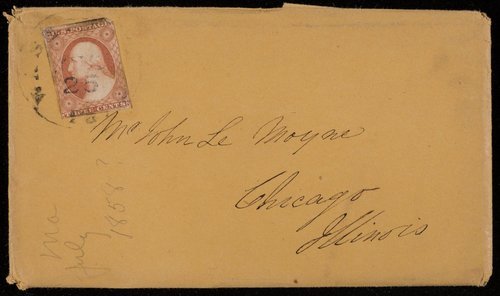 U.S. POSTAGE
THREE CENTS
Mr John Le Moyne
Chicago
Illinois
Ma
July
1858?